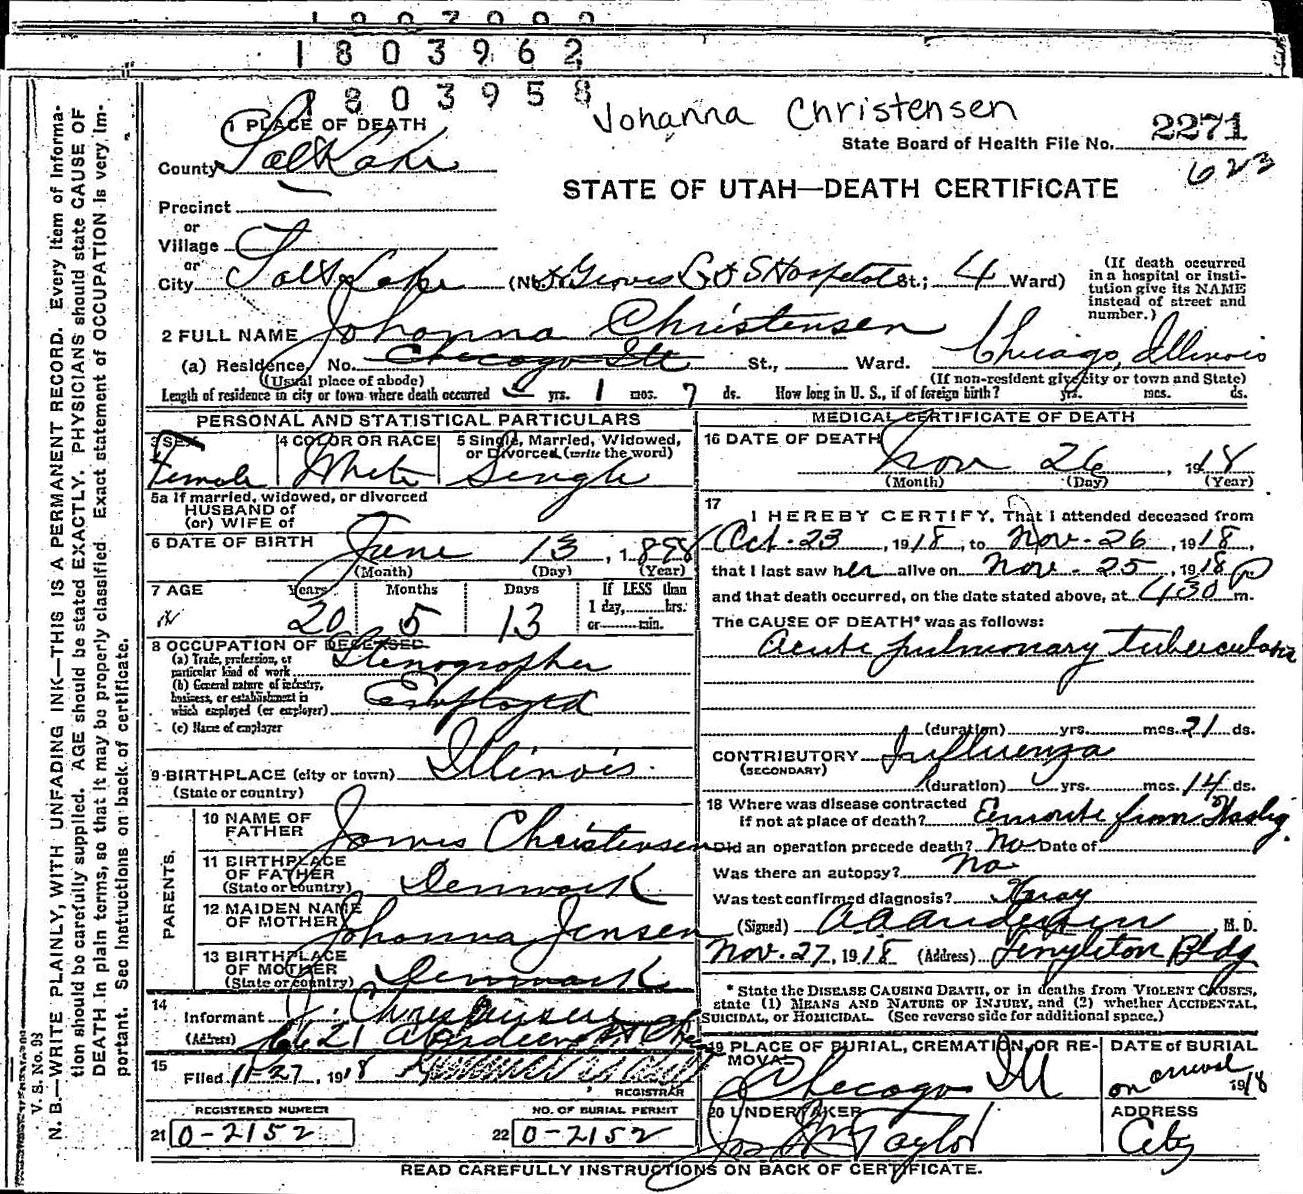 1803962
1803958
Johanna Christensen
State Board of Health File No. 2271
623
1 PLACE OF DEATH
County Salt Lake
STATE OF UTAH—DEATH CERTIFICATE
Precinct
or
Village
or
City Salt Lake (No. Groves L D S Hospital St.; 4 Ward)
(If death occurred in a hospital or institution give its NAME instead of street and number.)
2 FULL NAME Johanna Christensen
(a) Residence, No. Chicago Ill St., Ward. Chicago, Illinois
(Usual place of abode) (If non-resident give city or town and State)
Length of residence in city or town where death occurred yrs. 1 mos. 7 ds. How long in U. S., if of foreign birth? yrs. mos. ds.
PERSONAL AND STATISTICAL PARTICULARS
3 SEX Female
4 COLOR OR RACE White
5 Single, Married, Widowed, or Divorced (write the word) Single
5a If married, widowed, or divorced
HUSBAND of
(or) WIFE of
6 DATE OF BIRTH June 13, 1898
(Month) (Day) (Year)
7 AGE Years 20 Months 5 Days 13 If LESS than 1 day, hrs. or min.
8 OCCUPATION OF DECEASED
(a) Trade, profession, or particular kind of work Stenographer
(b) General nature of industry, business, or establishment in which employed (or employer) Employed
(c) Name of employer
9 BIRTHPLACE (city or town) Illinois.
(State or country)
PARENTS.
10 NAME OF FATHER James Christensen
11 BIRTHPLACE OF FATHER (State or country) Denmark
12 MAIDEN NAME OF MOTHER Johanna Jensen
13 BIRTHPLACE OF MOTHER (State or country) Denmark
14 Informant J. Christensen
(Address) 6621
15 Filed 11-27, 1918
REGISTRAR
REGISTERED NUMBER
21 0-2152
NO. OF BURIAL PERMIT
22 0-2152
MEDICAL CERTIFICATE OF DEATH
16 DATE OF DEATH Nov 26, 1918
(Month) (Day) (Year)
17 I HEREBY CERTIFY, That I attended deceased from
Oct. 23, 1918, to Nov. 26, 1918,
that I last saw her alive on Nov. 25, 1918
and that death occurred, on the date stated above, at 430 P m.
The CAUSE OF DEATH* was as follows:
Acute pulmonary tuberculosis
(duration) yrs. mos. 21 ds.
CONTRIBUTORY Influenza
(SECONDARY)
(duration) yrs. mos. 14 ds.
18 Where was disease contracted
if not at place of death? Enroute from
Did an operation precede death? No Date of
Was there an autopsy? No
Was test confirmed diagnosis? Xray
(Signed) A A Anderson M. D.
Nov. 27, 1918 (Address) Templeton Bldg
* State the DISEASE CAUSING DEATH, or in deaths from VIOLENT CAUSES, state (1) MEANS AND NATURE OF INJURY, and (2) whether ACCIDENTAL, SUICIDAL, or HOMICIDAL. (See reverse side for additional space.)
19 PLACE OF BURIAL, CREMATION, OR REMOVAL Chicago Ill
DATE OF BURIAL on arrival 1918
20 UNDERTAKER Jos Wm Taylor
ADDRESS City
READ CAREFULLY INSTRUCTIONS ON BACK OF CERTIFICATE.
V. S. No. 93
N. B.—WRITE PLAINLY, WITH UNFADING INK—THIS IS A PERMANENT RECORD. Every item of information should be carefully supplied. AGE should be stated EXACTLY. PHYSICIANS should state CAUSE OF DEATH in plain terms, so that it may be properly classified. Exact statement of OCCUPATION is very important. See Instructions on back of certificate.